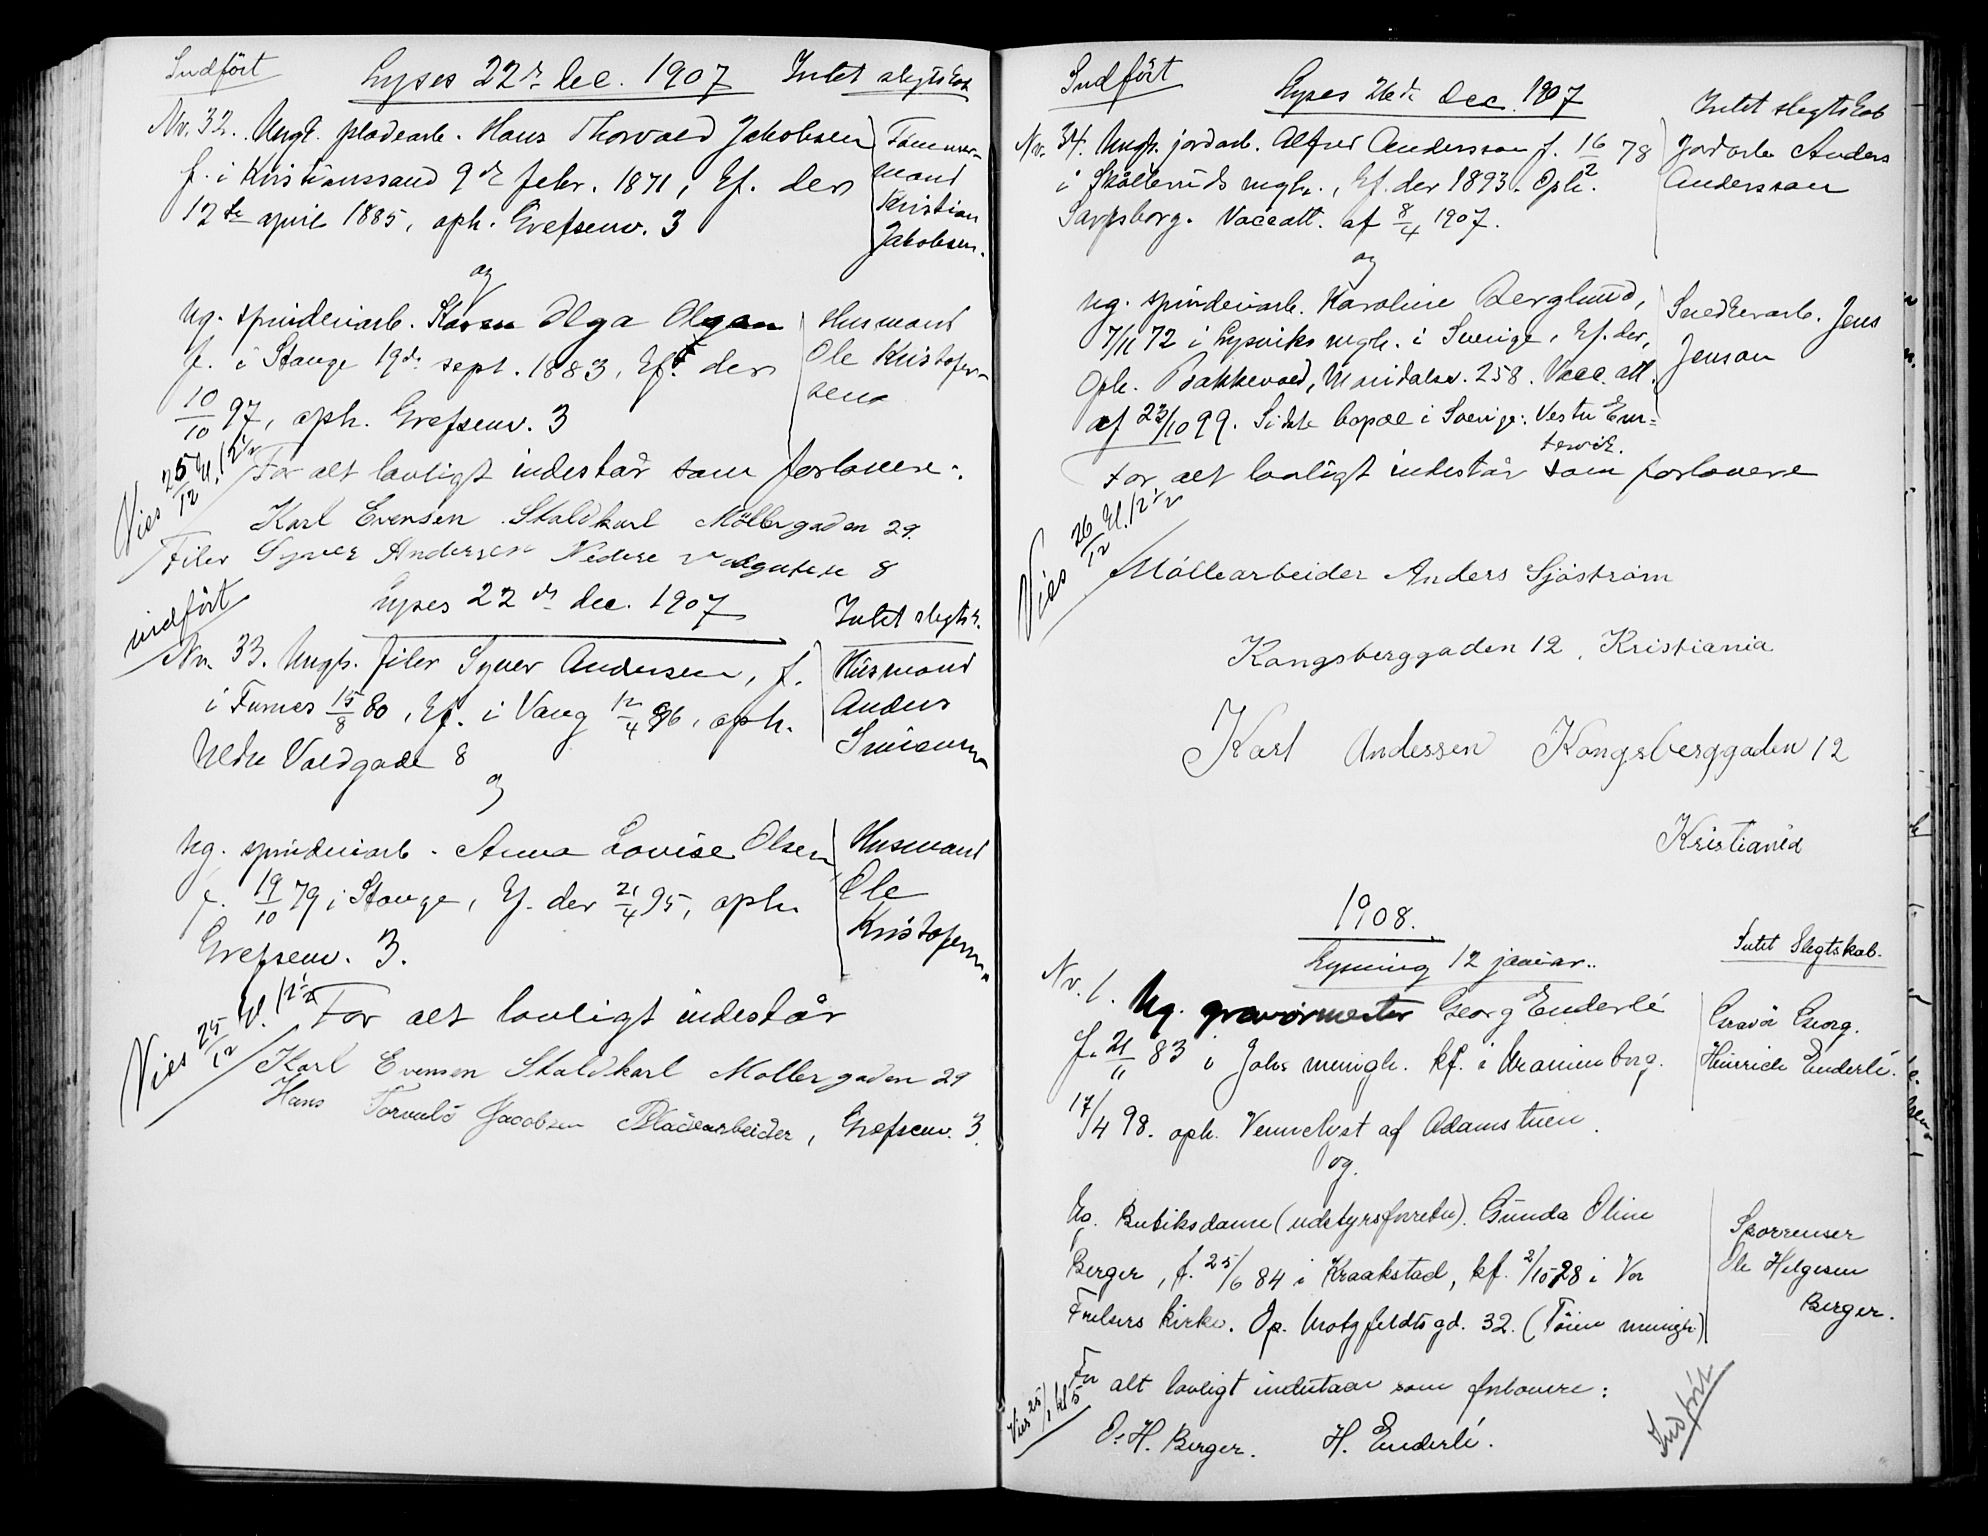 Indført
Lyses 22de dec. 1907 Intet slegtskab
Nr. 32. Ungk. pladearb. Hans Thorvald Jakobsen
f. i Kristianssand 9de febr. 1871, kf. der
12te april 1885, oph. Grefsenv. 3
Tømmer-
mand
Kristian
Jakobsen.
og
Ug. spinderiarb. Karen Olga Olsen
f. i Stange 19de sept. 1883, kf. der
10/10 97, oph. Grefsenv. 3
Husmand
Ole Kristofer-
sen.
Vies 25/12 kl. 12 1/2
For alt lovligt indestår som forlovere:
Karl Evensen Staldkarl Möllergaden 29.
Filer Syver Andersen Nedere Voldgaten 8
indført
Lyses 22de dec. 1907
Intet slegtsk.
Nr. 33. Ungk. filer Syver Andersen, f.
i Furnes 15/8 80, kf. i Vang 12/4 96, oph.
Nedre Voldgade 8
Husmand
Anders
og
Ug. spinderiarb. Anna Lovise Olsen
f. 19/10 79 i Stange, kf. der 21/4 95, oph.
Grefsenv. 3.
Husmand
Ole
Kristofersen
Vies 25/12 kl. 12 1/2
For alt lovligt indestår
Karl Evensen Staldkarl Mollergaden 29
Hans Torvald Jacobsen Pladearbeider, Grefsenv. 3.
Indført
Lyses 26de dec. 1907
Intet slegtskab
Nr. 34. Ungk. jordarb. Alfred Andersson f. 16/2 78
i Skålleruds mgh., kf. der 1893. Oph.
Sarpsborg. Vaccatt. af 8/4 1907.
Jordarb. Anders
Andersson
og
Ug. spinderiarb. Karoline Berglund,
7/11 72 i Lysviks mgh. i Sverige, kf. der,
Oph. Bakkevold, Maridalsv. 258. Vacc. att.
af 23/10 99. Sidste bopæl i Sverige: Vestre Em-
tervik.
Snedkerarb. Jens
Jenson
For alt lovligt indestår som forlovere
Vies 26/12 kl. 12 1/2
Möllearbeider Anders Sjöström
Kongsberggaden 12, Kristiania
Karl Andessen Kongsberggaden 12
Kristiania
1908.
Lysning 12 januar.
Intet Slegtskab.
Nr. 1. Ug. gravørmester Georg Enderlé
f. 21/11 83 i Johs menigh. kf. i Uranienborg.
17/4 98. oph. Vennelyst af Adamstuen.
Gravör Georg.
Heinrich Enderlé.
og.
Ug. Butiksdame (udstyrsforretn). Gunda Oline
Berger, f. 25/6 84 i Kraakstad, kf. 2/10 98 i Vor
Frelsers kirke. Op. Motzfeldtsgd. 32. (Töien menigh)
Ole Helgesen
Berger.
For alt lovligt indestaar som forlovere:
Vies 25/1 kl 5
O. H. Berger. H. Enderlé.
Indført